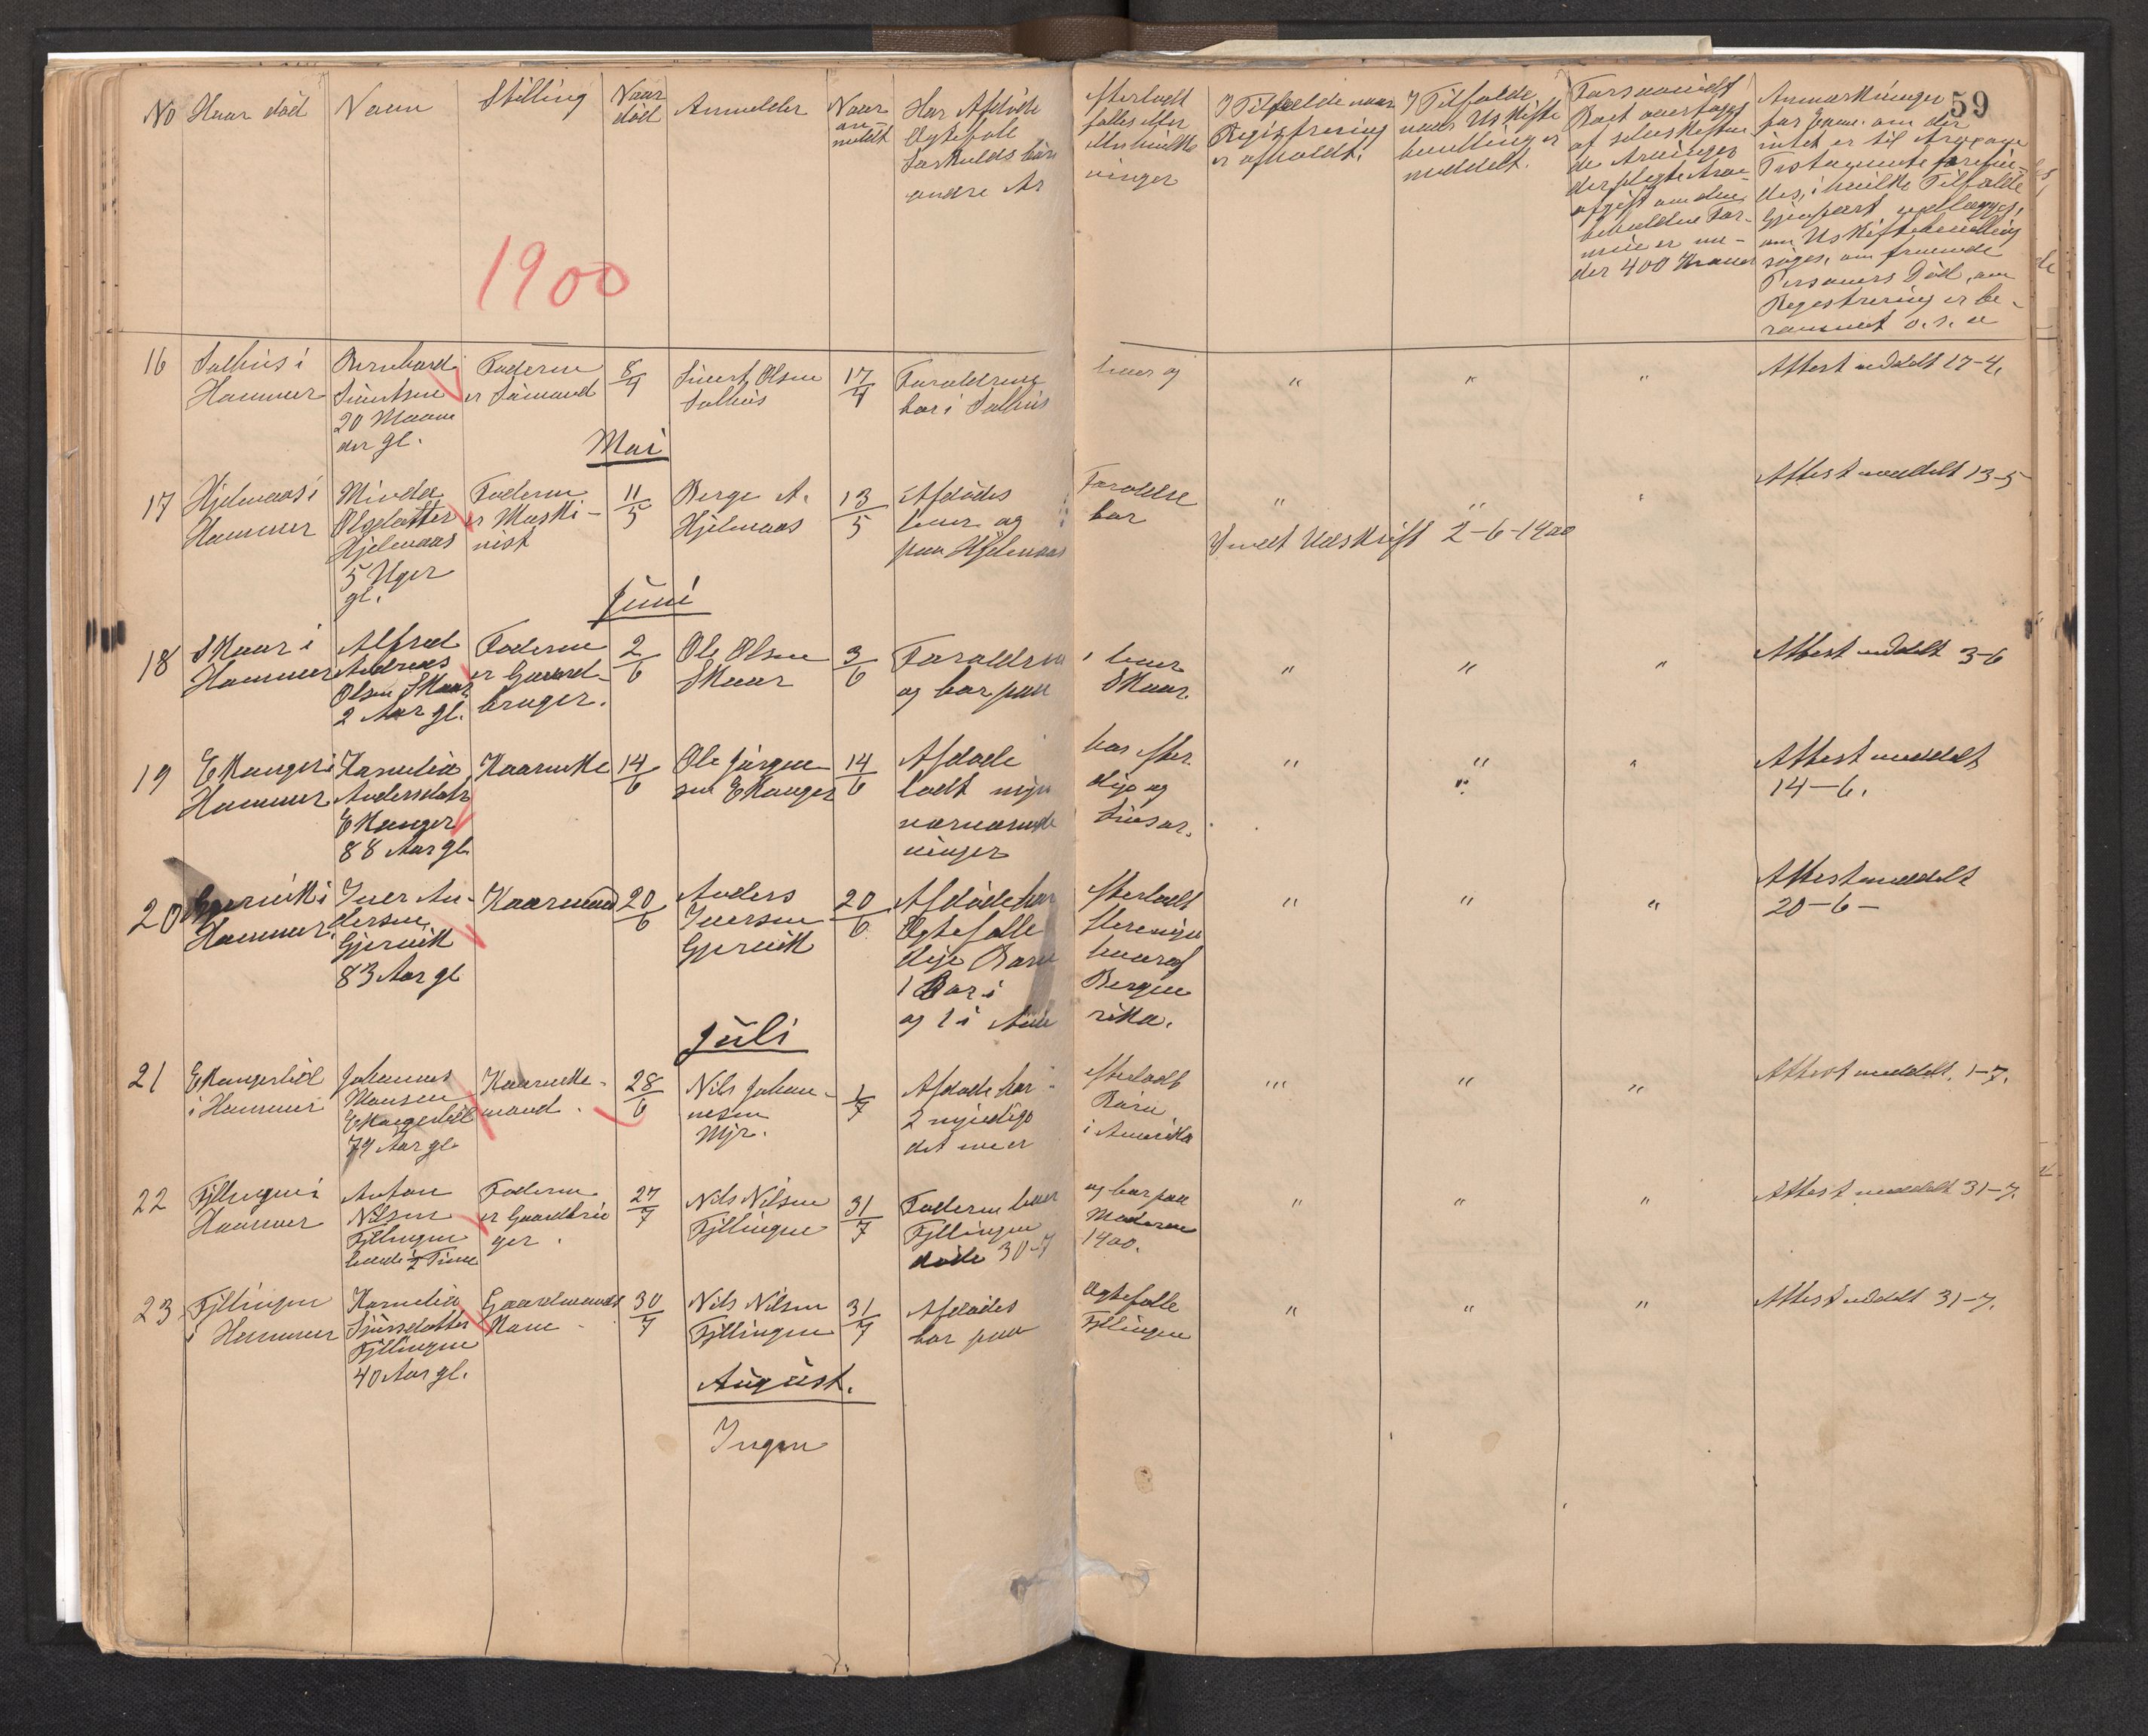 59
No
Hvor død
Navn
Stilling
Naar
død
Anmelder
Naar
an-
meldt
Har Afdøde
Ægtefolle
Særkuldsbørn
andre Ar
efterladt
folles eller
eller hvilke
vinger
I Tilfælde naar
Registrering
er afholdt.
I Tilfælde
naar Uskifte
bevilling er
meddelt.
Forsaavidt
Boet overtages
af selvskiftende
de Arvinger
der slegte Arve-
afgift om den
beholdne For-
mue er un-
der 400 Kroner
Anmærkninger
for Exem. om der
intet er til Arv
Testamente forefin-
des, i hvilke Tilfælde
Gjenpart vedlægges,
om Uskiftebevilling
søges, om fremmede
Personers Død, om
Registrering er be-
rammet o.s.v
1900
16
Salhus i
Hammer
Bernhard
Sivertsen
20 Maane
der gl.
Faderen
er Sømand
8/4
Sivert Olsen
Salhus
17/4
Forældrene
bor i Salhus
lever og
" " "
Attest meddelt 17-4.
Mai
17
Hjelmaas i
Hammer
Minda
Olsdatter
Hjelmaas
5 Uger
gl.
Faderen
er Maski-
nist
11/5
Berge A.
Hjelmaas
13/5
Afdødes
lever og
paa Hjelmaas
Forældre
bor
" " "
Attest meddelt 13-5
Sendt Udskrift 2-6-1900
Juni
18
Skaar i
Hammer
Alfred
Andreas
Olsen Skaar
2 Aar gl.
Faderen
er Gaard-
bruger.
2/6
Ole Olsen
Skaar
3/6
Forældrene
og bor paa
lever
Skaar.
" " "
Attest meddelt 3-6
19
Ekanger i
Hammer
Kornelia
Andersdatr
Ekanger
88 Aar gl.
Kaarenke
14/6
Ole Jørgen
sen Ekanger
14/6
Afdøde
ladt myn
nærværende
ninger
har efter
dige og
Livsar.
" " "
Attest meddelt
14-6.
20
Gjervik i
Hammer
Iver An-
dersen
Gjervik
83 Aar gl
Kaarmand
20/6
Anders
Iversen
Gjervik
20/6
Afdøde har
Ægtefolle
dige Børn
1 Bor i
og 1 i Ame
efterladt
flere myn
hvoraf
Bergen
rika.
" " "
Attest meddelt
20-6-
Juli
21
Ekangerlid
i Hammer
Johannes
Monsen
Ekangerlid
79 Aar gl.
Kaarenke-
mand.
28/6
Nils Johan-
nesen
Mjr.
1/7
Afdøde har
2 myndige
det ene er
efterladt
Børn
i Amerika
" " "
Attest meddelt. 1-7.
22
Fjellingen i
Hammer
Anton
Nilsen
Fjellingen
levede ½ Time
Faderen
er Gaardbru
ger.
27/7
Nils Nilsen
Fjellingen
31/7
Faderen lever
Fjellingen
døde 30-7
og bor paa
Moderen
1900.
" " "
Attest meddelt 31-7.
23
Fjellingen
i Hammer
Kornelia
Sjursdatter
Fjellingen
40 Aar gl.
Gaardmands
Kone
30/7
Nils Nilsen
Fjellingen
31/7
Afdødes
bor paa
Ægtefolle
Fjellingen
" " "
Attest meddelt 31-7.
August.
Ingen